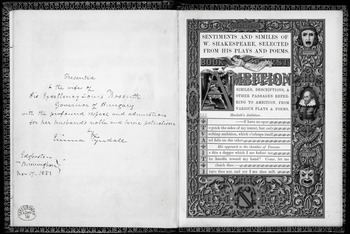 Presented
to the wife of
His Excellency Louis Kossuth
Governor of Hungary
with the profound respect and admiration
for her husband's noble and
by
Tyndall
Edgbaston
Birmingham
Nov 17. 1851
SENTIMENTS AND SIMILES OF
W. SHAKESPEARE, SELECTED
FROM HIS PLAYS AND POEMS.
AMBITION
SIMILES, DESCRIPTIONS, &
OTHER PASSAGES REFER-
RING TO AMBITION, FROM
VARIOUS PLAYS & POEMS.
Macbeth's Ambition.
I have no spur
to prick the sides of my intent, but only
Vaulting ambition, which o'erleaps itself
And falls on the other.
Is this a dagger which I see before me,
The handle toward my hand? Come, let me
clutch thee:
I have thee not, and yet I see thee still.